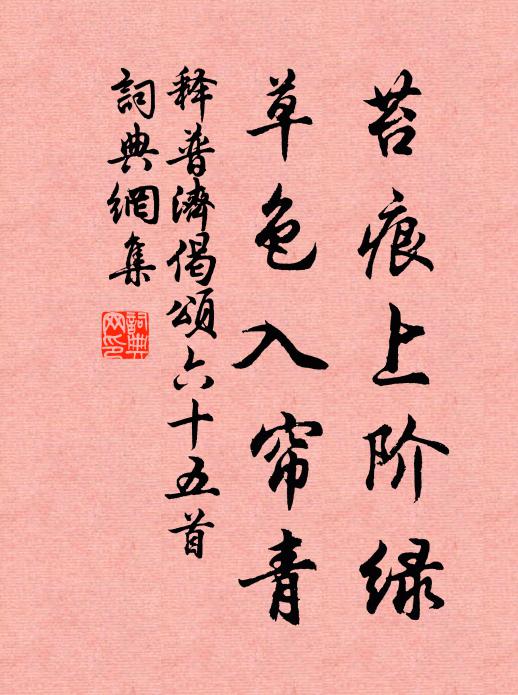 苔痕上阶绿
草色入帘青
释普濟偈頌六十五首
詞典網集
詞典网印